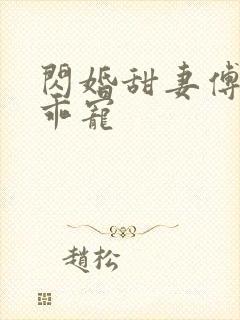 閃婚甜妻傅
乖寵
趙松